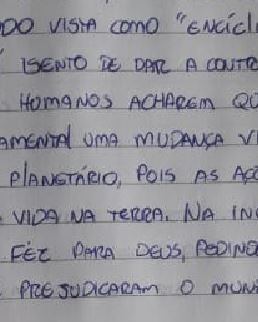 DO VISTA COMO "ENCÍCL
ISENTO DE DAR A CONTR
HUMANOS ACHAREM QU
AMENTAL UMA MUDANÇA VI
PLANETÁRIO, POIS AS AÇÕ
VIDA NA TERRA. NA IN
FEZ PARA DEUS, PEDIND
PREJUDICARAM O MUN